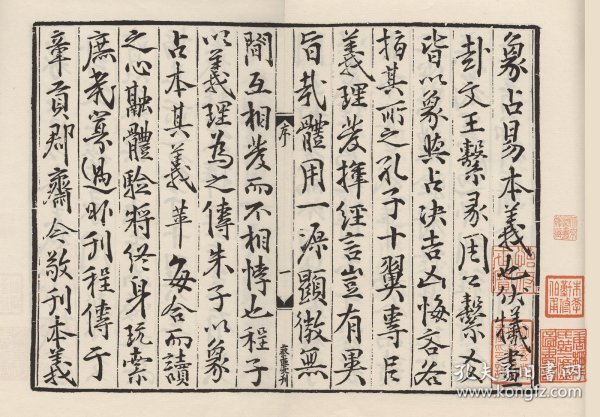 象占易本義也伏犧畫
卦文王繫彖周公繫爻
皆以象與占決吉凶悔吝各
指其所之孔子十翼專㠯
義理發揮經言豈有異
旨哉體用一源顯微無
序
一
間互相發而不相悖也程子
以義理為之傳朱子以象
占本其義革每合而讀
之心融體驗將終身玩索
庶幾寡過昨刊程傳于
章貢郡齋今敬刊本義
孔夫子旧书网
www.kongfz.com